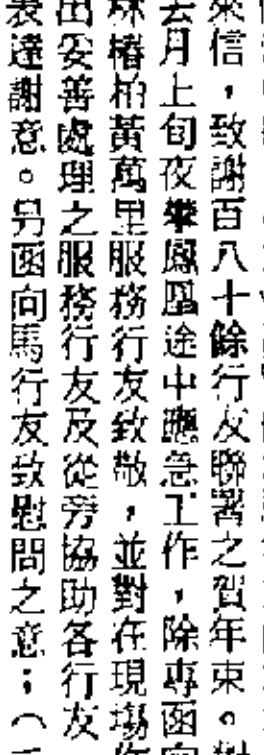 來信，致謝百八十餘行友聯署之賀年柬。對
去月上旬夜攀鳳凰途中應急工作，除專函
林椿柏黃萬里服務行友致敬，並對在現場作
出妥善處理之服務行友及從旁協助各行友
表達謝意。另函向馬行友致慰問之意；（